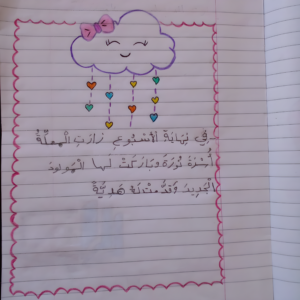 في نِهَايَةِ الأُسْبُوعِ زَارَتِ المُعلِّمَةُ
أُسْرَةَ نُورَةَ وَبَارَكَتْ لَها المَولودَ
الجَدِيدَ وَقَدَّمَتْ لَهُ هَدِيَّةً